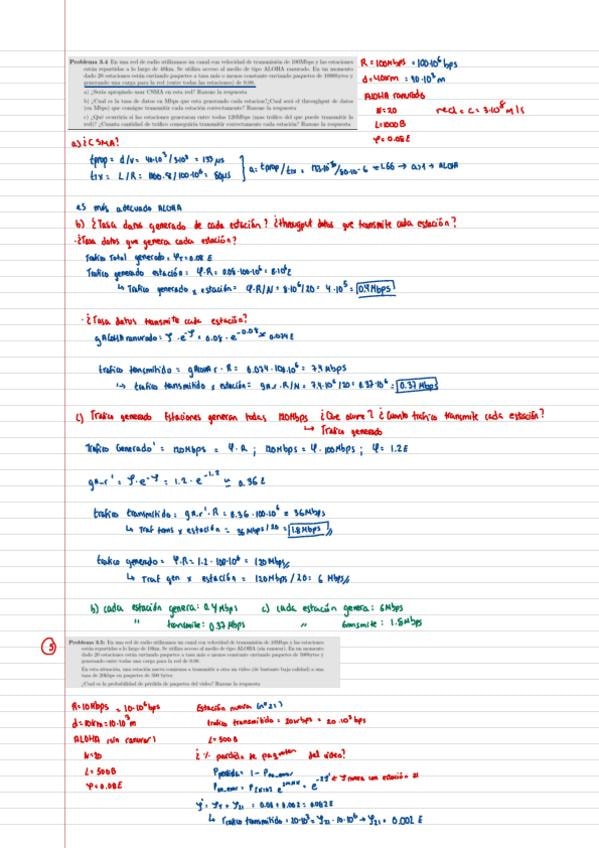 Problema 3.4 En una red de radio utilizamos un canal con velocidad de transmisión de 100Mbps y las estaciones
están repartidas a lo largo de 40km. Se utiliza acceso al medio de tipo ALOHA ranurado. En un momento
dado 20 estaciones están enviando paquetes a tasa más o menos constante enviando paquetes de 1000bytes y
generando una carga para la red (entre todas las estaciones) de 0.08.
a) ¿Sería apropiado usar CSMA en esta red? Razone la respuesta
b) ¿Cual es la tasa de datos en Mbps que esta generando cada estacion?¿Cual será el throughput de datos
(en Mbps) que consigue transmitir cada estación correctamente? Razone la respuesta
c) ¿Qué ocurriría si las estaciones generaran entre todas 120Mbps (mas tráfico del que puede transmitir la
red)? ¿Cuanta cantidad de tráfico conseguiría transmitir correctamente cada estación? Razone la respuesta
R = 100Mbps = 100·10⁶ bps
d = 40km = 40·10³ m
ALOHA ranurado
N = 20 red = c = 3·10⁸ m/s
L = 1000B
φ = 0.08 E
a) ¿CSMA?
tprop = d/v = 40·10³/3·10⁸ = 133 µs
ttx = L/R = 1000·8/100·10⁶ = 80µs
a = tprop/ttx = 133·10⁻⁶/80·10⁻⁶ = 1.66 → a>1 → ALOHA
es más adecuado ALOHA
b) ¿Tasa datos generado de cada estación? ¿throughput datos que transmite cada estación?
·¿Tasa datos que genera cada estación?
Trafico Total generado = φT = 0.08 E
Trafico generado estación = φ·R = 0.08·100·10⁶ = 8·10⁶
↳ Trafico generado x estación = φ·R/N = 8·10⁶/20 = 4·10⁵ = 0.4 Mbps
·¿Tasa datos transmite cada estación?
gALOHA ranurado = φ·e^-φ = 0.08·e^-0.08 ≈ 0.074 E
trafico transmitido = gALOHA r · R = 0.074·100·10⁶ = 7.4 Mbps
↳ trafico transmitido x estación = ga.r·R/N = 7.4·10⁶/20 = 0.37·10⁶ = 0.37 Mbps
c) Trafico generado Estaciones generan todas 120Mbps ¿Que ocurre? ¿Cuanto tráfico transmite cada estación?
↳ Trafico generado
Trafico Generado' = 120Mbps = φ·R ; 120Mbps = φ·100Mbps ; φ = 1.2E
ga.r' = φ·e^-φ = 1.2·e^-1.2 ≃ 0.36 E
trafico transmitido = ga.r'·R = 0.36·100·10⁶ = 36Mbps
↳ Traf trans x estación = 36Mbps/20 = 1.8Mbps
trafico generado = φ·R = 1.2·100·10⁶ = 120Mbps
↳ Traf gen x estación = 120Mbps/20 = 6 Mbps
b) cada estación genera: 0.4Mbps c) cada estación genera: 6Mbps
" transmite: 0.37Mbps " transmite: 1.8Mbps
5
Problema 3.5: En una red de radio utilizamos un canal con velocidad de transmisión de 10Mbps y las estaciones
están repartidas a lo largo de 10km. Se utiliza acceso al medio de tipo ALOHA (sin ranurar). En un momento
dado 20 estaciones están enviando paquetes a tasa más o menos constante enviando paquetes de 500bytes y
generando entre todas una carga para la red de 0.08.
En esta situación, una estación nueva comienza a transmitir a otra un video (de bastante baja calidad) a una
tasa de 20kbps en paquetes de 500 bytes
¿Cual es la probabilidad de pérdida de paquetes del video? Razone la respuesta
R = 10Mbps = 10·10⁶ bps
d = 10km = 10·10³ m
ALOHA (sin ranurar)
N = 20
L = 500B
φ = 0.08E
Estación nueva (nº21)
trafico transmitido = 20kbps = 20·10³ bps
L = 500B
¿% perdida de paquetes del video?
Pperdida = 1 -
φ' = φT + φ21 = 0.08 + 0.002 = 0.082E
↳ Trafico transmitido = 20·10³ = φ21·10·10⁶ → φ21 = 0.002 E